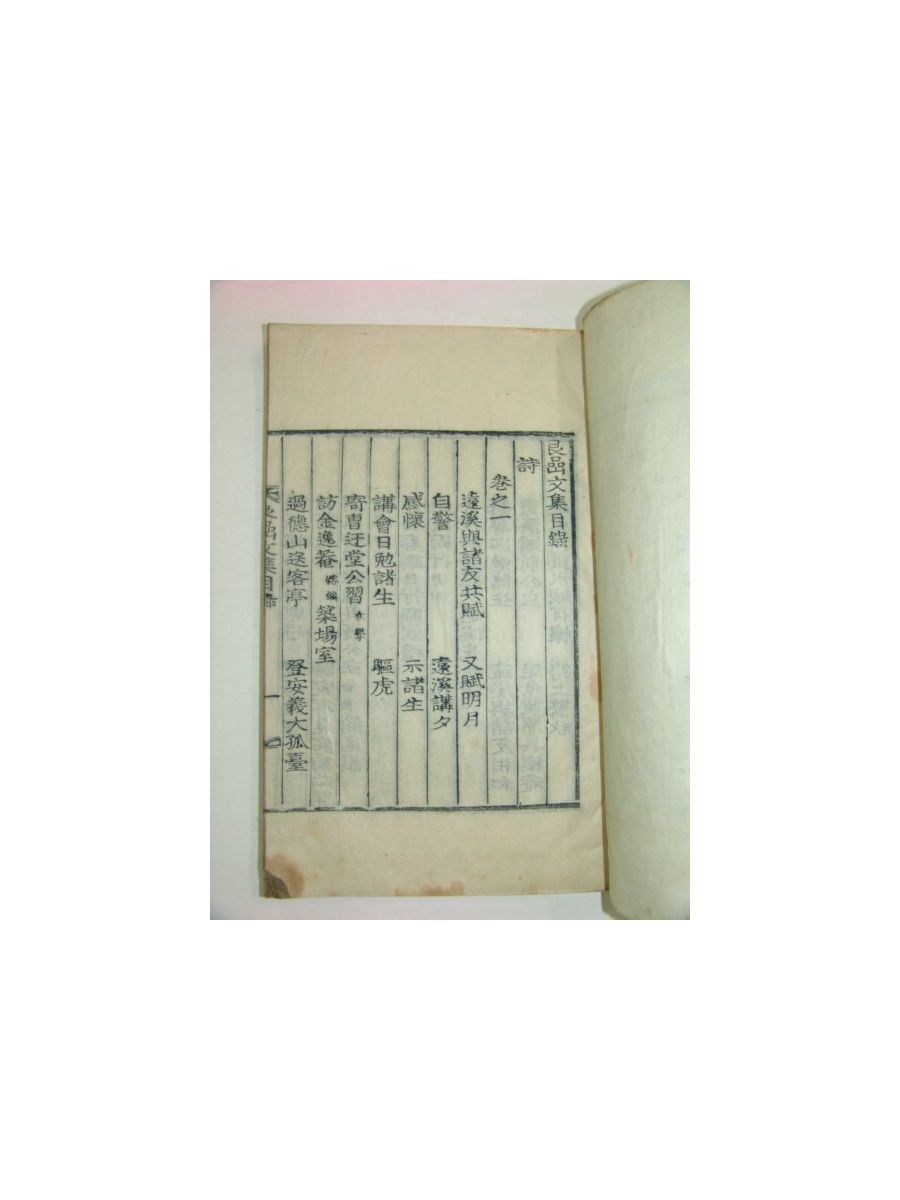 艮嵒文集目錄
詩
卷之一
遠溪與諸友共賦 又賦明月
自警 遠溪講夕
感懷 示諸生
講會日勉諸生 驅虎
寄曺迂堂公習 在學
訪金逸菴 築場室
過德山送客亭 登安義大孤臺
艮嵒文集目錄 一